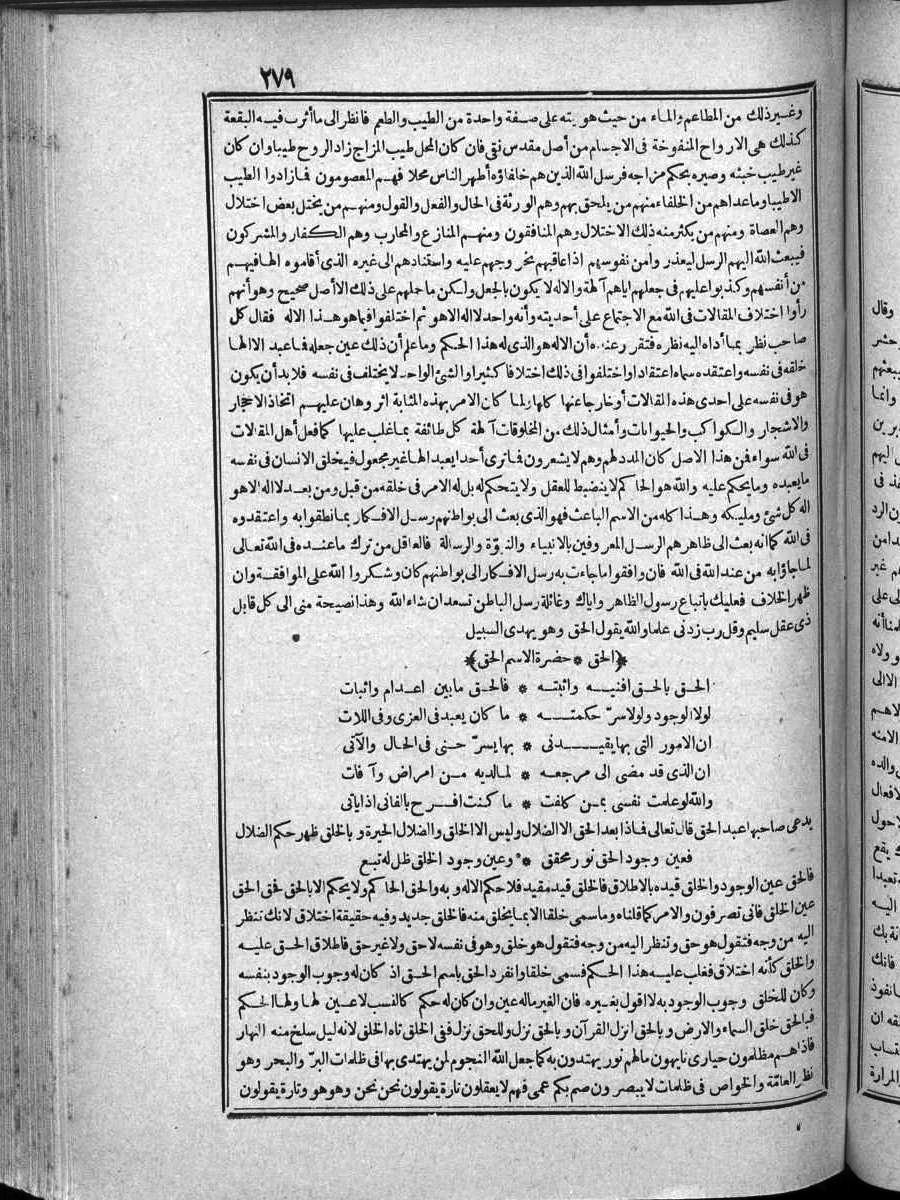 ٢٧٩
وغير ذلك من المطاعم والماء من حيث هويته على صفة واحدة من الطيب والطعم فانظر الى ما أثرت فيه البقعة
كذلك هى الارواح المنفوخة فى الاجسام من أصل مقدس نقى فان كان المحل طيب المزاج زاد الروح طيبا وان كان
غير طيب خبثه وصيره بحكم مزاجه فرسل الله الذين هم خلفاؤه أطهر الناس محلا فهم المعصومون فمازادوا الطيب
الاطيبا وماعداهم من الخلفاء منهم من يلحق بهم وهم الورثة فى الحال والفعل والقول ومنهم من يختل بعض اختلال
وهم العصاة ومنهم من يكثر منه ذلك الاختلال وهم المنافقون ومنهم المنازع والمحارب وهم الكفار والمشركون
فيبعث الله اليهم الرسل ليعذر وامن نفوسهم اذا عاقبهم بخر وجهم عليه واستنادهم الى غيره الذى أقاموه الها فيهم
من أنفسهم وكذبوا عليهم فى جعلهم اياهم آلهة والاله لا يكون بالجعل ولكن ما حملهم على ذلك الا أصل صحيح وهو أنهم
رأوا اختلاف المقالات فى الله مع الاجتماع على أحديته وأنه واحد لا اله الا هو ثم اختلفوا فيما هو هذا الاله فقال كل
صاحب نظر بما أداه اليه نظره فتقرر عنده أن الاله هو الذى له هذا الحكم وما علم أن ذلك عين جعله فما عبد الا الها
خلقه فى نفسه واعتقده سماه اعتقادا واختلفوا فى ذلك اختلافا كثيرا والشئ الواحد لا يختلف فى نفسه فلا بد أن يكون
هو فى نفسه على احدى هذه المقالات أو خارجا عنها كلها ولما كان الامر بهذه المثابة اثر وهان عليهم اتخاذ الاحجار
والاشجار والكواكب والحيوانات وأمثال ذلك من المخلوقات آلهة كل طائفة بما غلب عليها كما فعل أهل المقالات
فى الله سواء فمن هذا الاصل كان المدد لهم وهم لا يشعرون فما ترى أحدا يعبد الها غير مجعول فيخلق الانسان فى نفسه
ما يعبده وما يحكم عليه والله هو الحاكم لا ينضبط للعقل ولا يتحكم له بل له الامر فى خلقه من قبل ومن بعد لا اله الا هو
اله كل شئ ومليكه وهذا كله من الاسم الباعث فهو الذى بعث الى بواطنهم رسل الافكار بما نطقوا به واعتقدوه
فى الله كما انه بعث الى ظاهرهم الرسل المعروفين بالانبياء والنبوّة والرسالة فالعاقل من ترك ما عنده فى الله تعالى
لما جاؤا به من عند الله فى الله فان وافقوا ما جاءت به رسل الافكار الى بواطنهم كان وشكروا الله على الموافقة وان
ظهر الخلاف فعليك باتباع رسول الظاهر واياك وغائلة رسل الباطن تسعد ان شاء الله وهذا نصيحة منى الى كل قابل
ذى عقل سليم وقل رب زدنى علما والله يقول الحق وهو يهدى السبيل
﴿الحق * حضرة الاسم الحق﴾
الحق بالحق افنيه واثبته * فالحق ما بين اعدام واثبات
لولا الوجود ولولا سرّ حكمته * ما كان يعبد فى العزى وفى اللات
ان الامور التى بها يقيدنى * بها يسرّ حنى فى الحال والآتى
ان الذى قد مضى الى مرجعه * لما لديه من امراض وآفات
والله لو علمت نفسى بمن كلفت * ما كنت افرح بالفانى اذا ياتى
يدعى صاحبها عبد الحق قال تعالى فماذا بعد الحق الا الضلال وليس الا الخلق والضلال الحيرة وبالخلق ظهر حكم الضلال
فعين وجود الحق نور محقق * وعين وجود الخلق ظل له تبع
فالحق عين الوجود والخلق قيده بالاطلاق فالخلق قيد مقيد فلا حكم الا له وبه والحق الحاكم ولا يحكم الا بالحق فحق الحق
عين الخلق فانى تصرفون والامر كما قلناه وما سمى خلقا الا بما يخلق منه فالخلق جديد وفيه حقيقة اختلاق لانك تنظر
اليه من وجه فتقول هو حق وتنظر اليه من وجه فتقول هو خلق وهو فى نفسه لا حق ولا غير حق فاطلاق الحق عليه
والخلق كأنه اختلاق فغلب عليه هذا الحكم فسمى خلقا وانفرد الحق باسم الحق اذ كان له وجوب الوجود بنفسه
وكان للخلق وجوب الوجود به لا اقول بغيره فان الغير ماله عين وان كان له حكم كالنسب لا عين لها ولها الحكم
فبالحق خلق السماء والارض وبالحق انزل القرآن وبالحق نزل وللحق نزل فى الخلق تاه الخلق لانه ليل سلخ منه النهار
فاذا هم مظلمون حيارى تايهون مالهم نور يهتدون به كما جعل الله النجوم لمن يهتدى بها فى ظلمات البرّ والبحر وهو
نظر العامّة والخواص فى ظلمات لا يبصرون صم بكم عمى فهم لا يعقلون تارة يقولون نحن نحن وهو هو وتارة يقولون